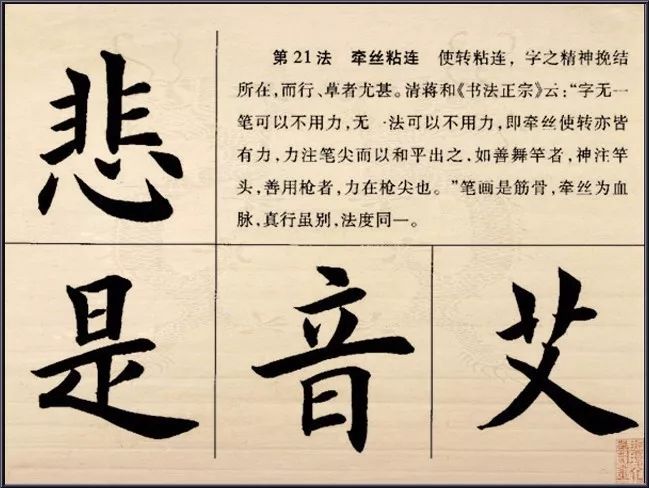 悲
第21法 牵丝粘连 使转粘连，字之精神挽结
所在，而行、草者尤甚。清蒋和《书法正宗》云：“字无一
笔可以不用力，无一法可以不用力，即牵丝使转亦皆
有力，力注笔尖而以和平出之，如善舞竿者，神注竿
头，善用枪者，力在枪尖也。”笔画是筋骨，牵丝为血
脉，真行虽别，法度同一。
是
音
艾